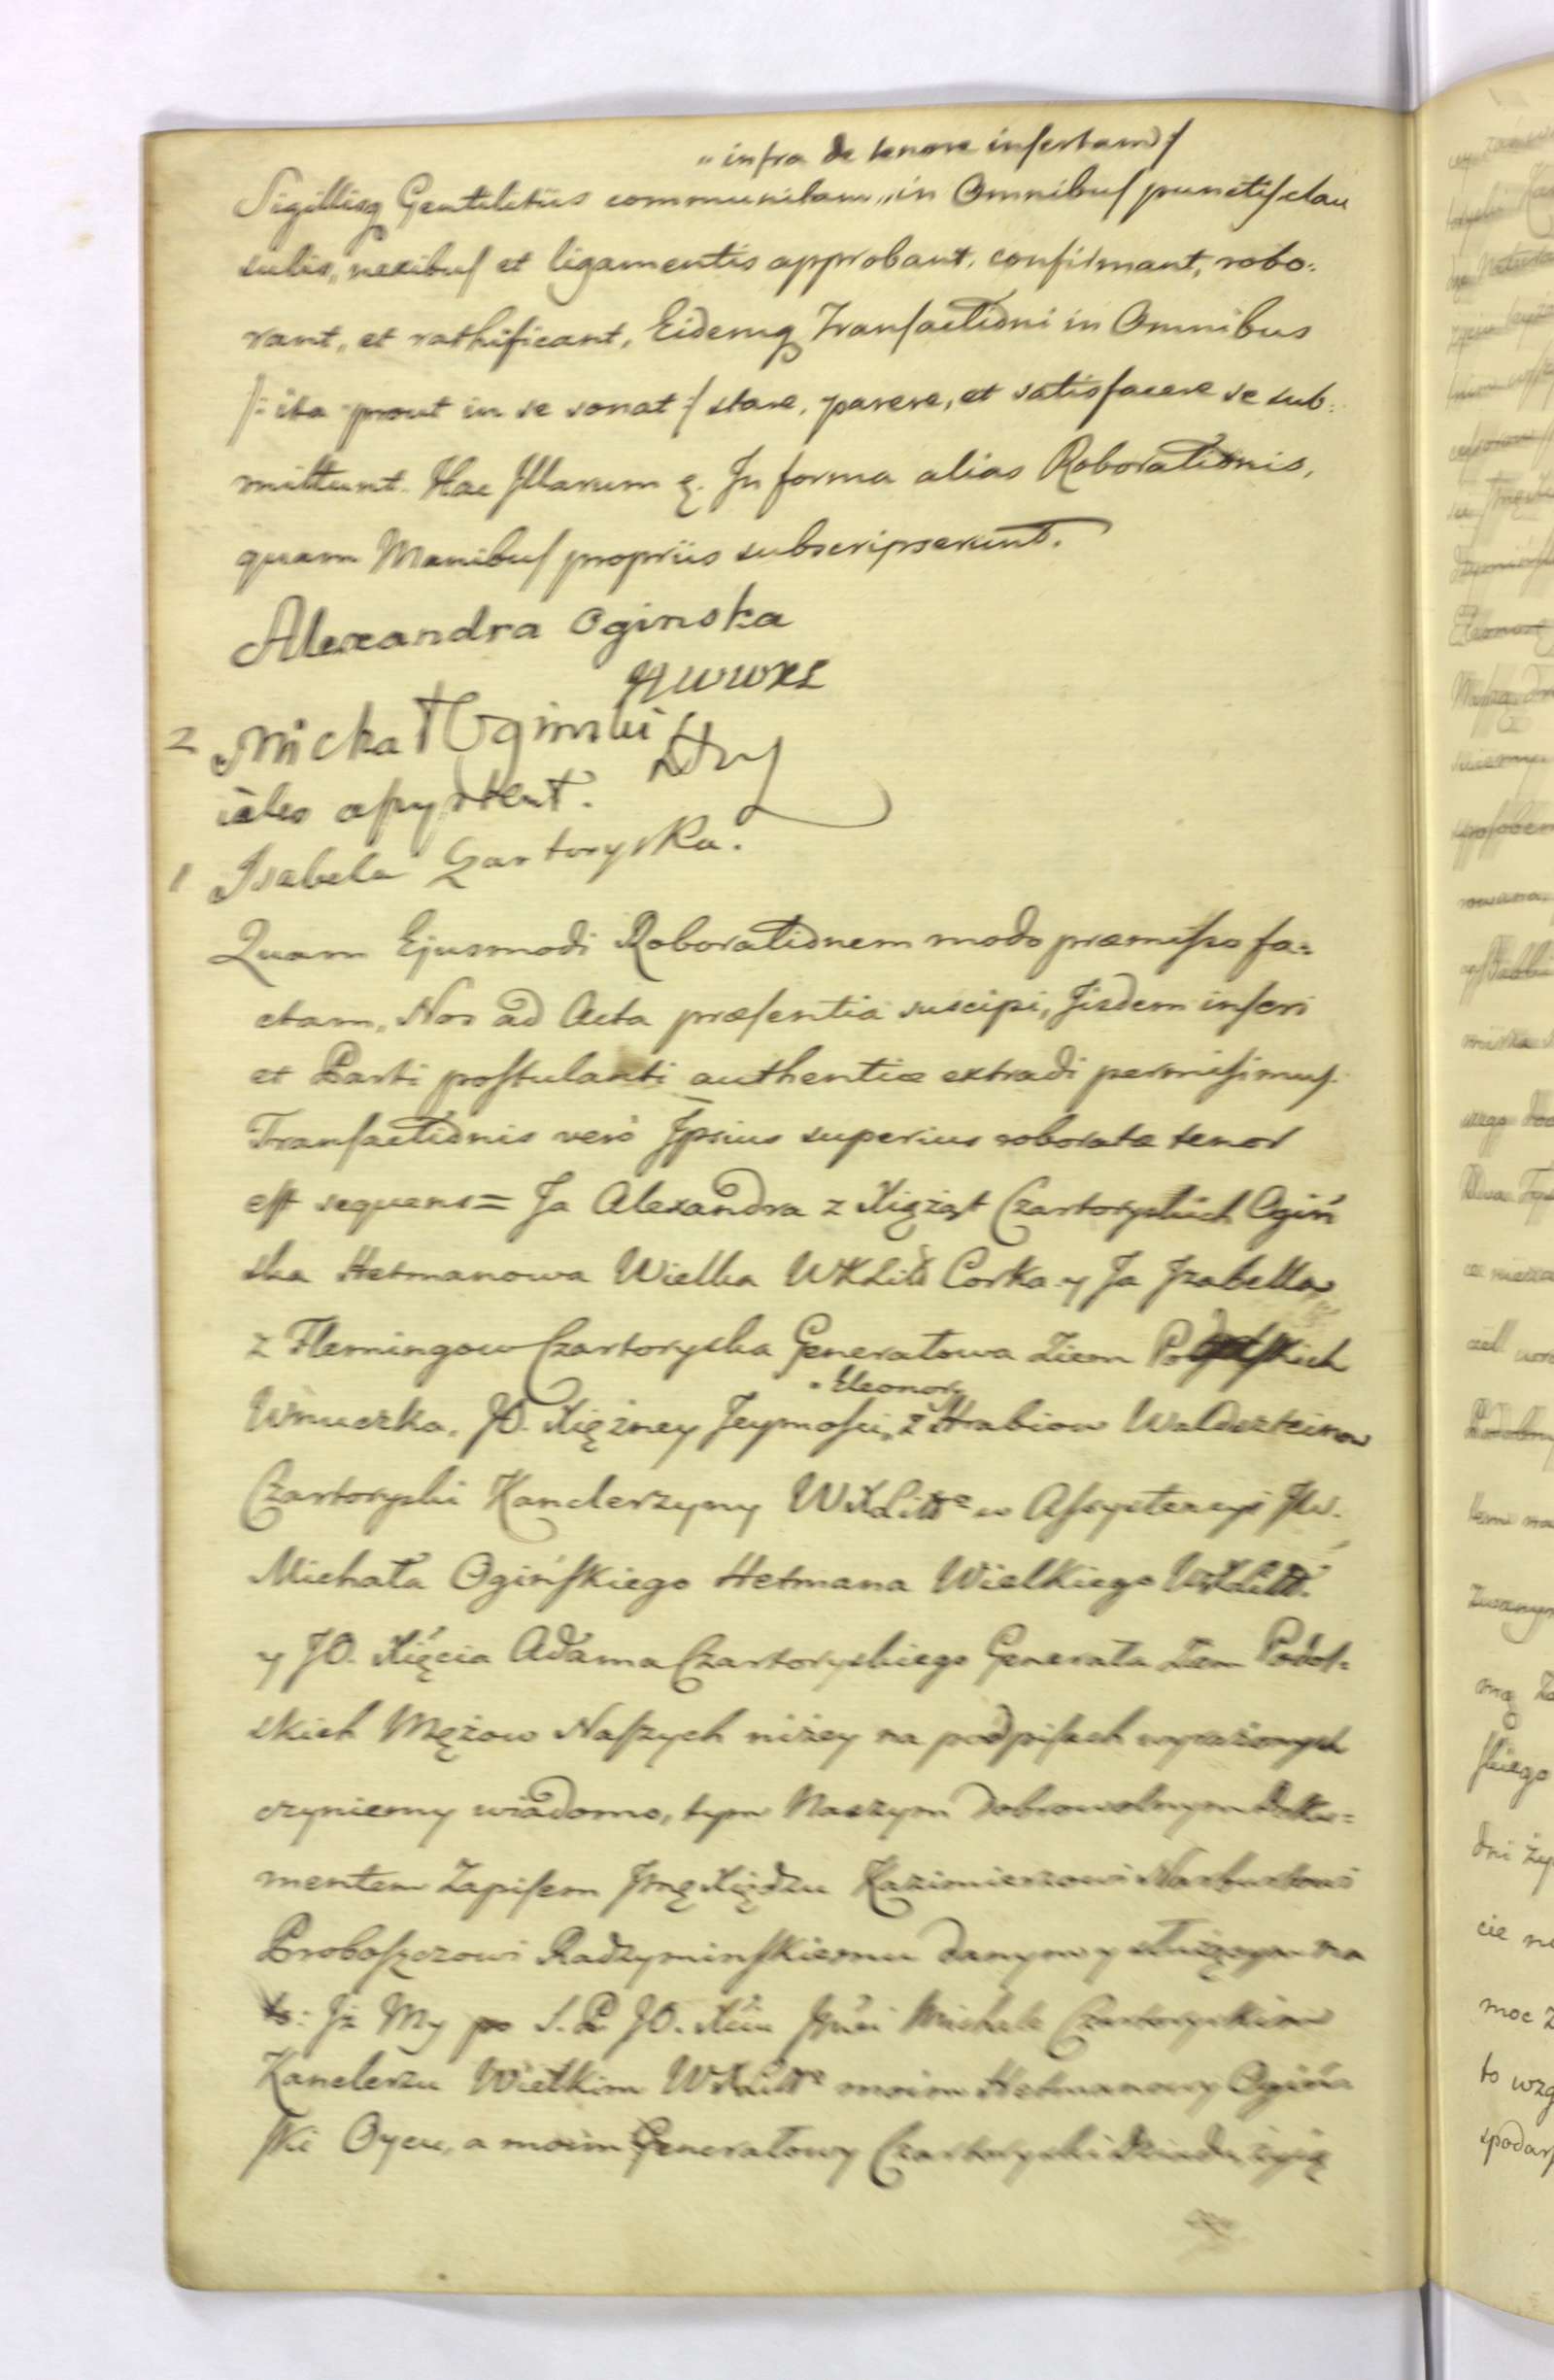 „infra de tenore insertam /
Sigillisq Gentilitiis communitam „ in Omnibus punctis clau
sulis, nexibus et ligamentis approbant, confirmant, robo:
rant, et rathificant, Eidemq Transactioni in Omnibus
/: ita prout in se sonat :/ stare, parere, et satisfacere se sub:
mittunt. Hac Illarum q. In forma alias Roborationis,
quam Manibus propriis subscripserunt.
Alexandra Oginska
HWWXL
2 Michał Oginski
iako assystent.
1 Isabela Czartoryska.
Quam Ejusmodi Roborationem modo præmisso fa=
ctam, Nos ad Acta præsentia suscipi, Iisdem inseri
et Parti postulanti authentice extradi permisimus.
Transactionis vero Ipsius superius roboratæ tenor
est sequens = Ja Alexandra z Xiążąt Czartoryskich Ogiń
ska Hetmanowa Wielka WXLitt Corka y Ja Izabella
z Flemingow Czartoryska Generałowa Ziem Podolskich
„Eleonory
Wnuczka, JO. Xiężney Jeymości, z Hrabiow Waldszteinow
Czartoryski Kanclerzyny WXLitt° w Assystencyi JW.
Michała Ogińskiego Hetmana Wielkiego WXLitt.
y JO. Xięcia Adama Czartoryskiego Generała Ziem Podol=
skich Mężow Naszych niżey na podpisach wyrażonych
czyniemy wiadomo, tym Naszym dobrowolnym Doku=
mentem Zapisem Jmę Xiędzu Kazimierzowi Narbutowi
Proboszczowi Radzyminskiemu danym y służącym na
to: Iż My po S. P. JO. Xciu Jmci Michale Czartoryskim
Kanclerzu Wielkim WXLitt° moim Hetmanowy Ogiń=
ski Oycu, a moim Generałowy Czartoryski Dziadu